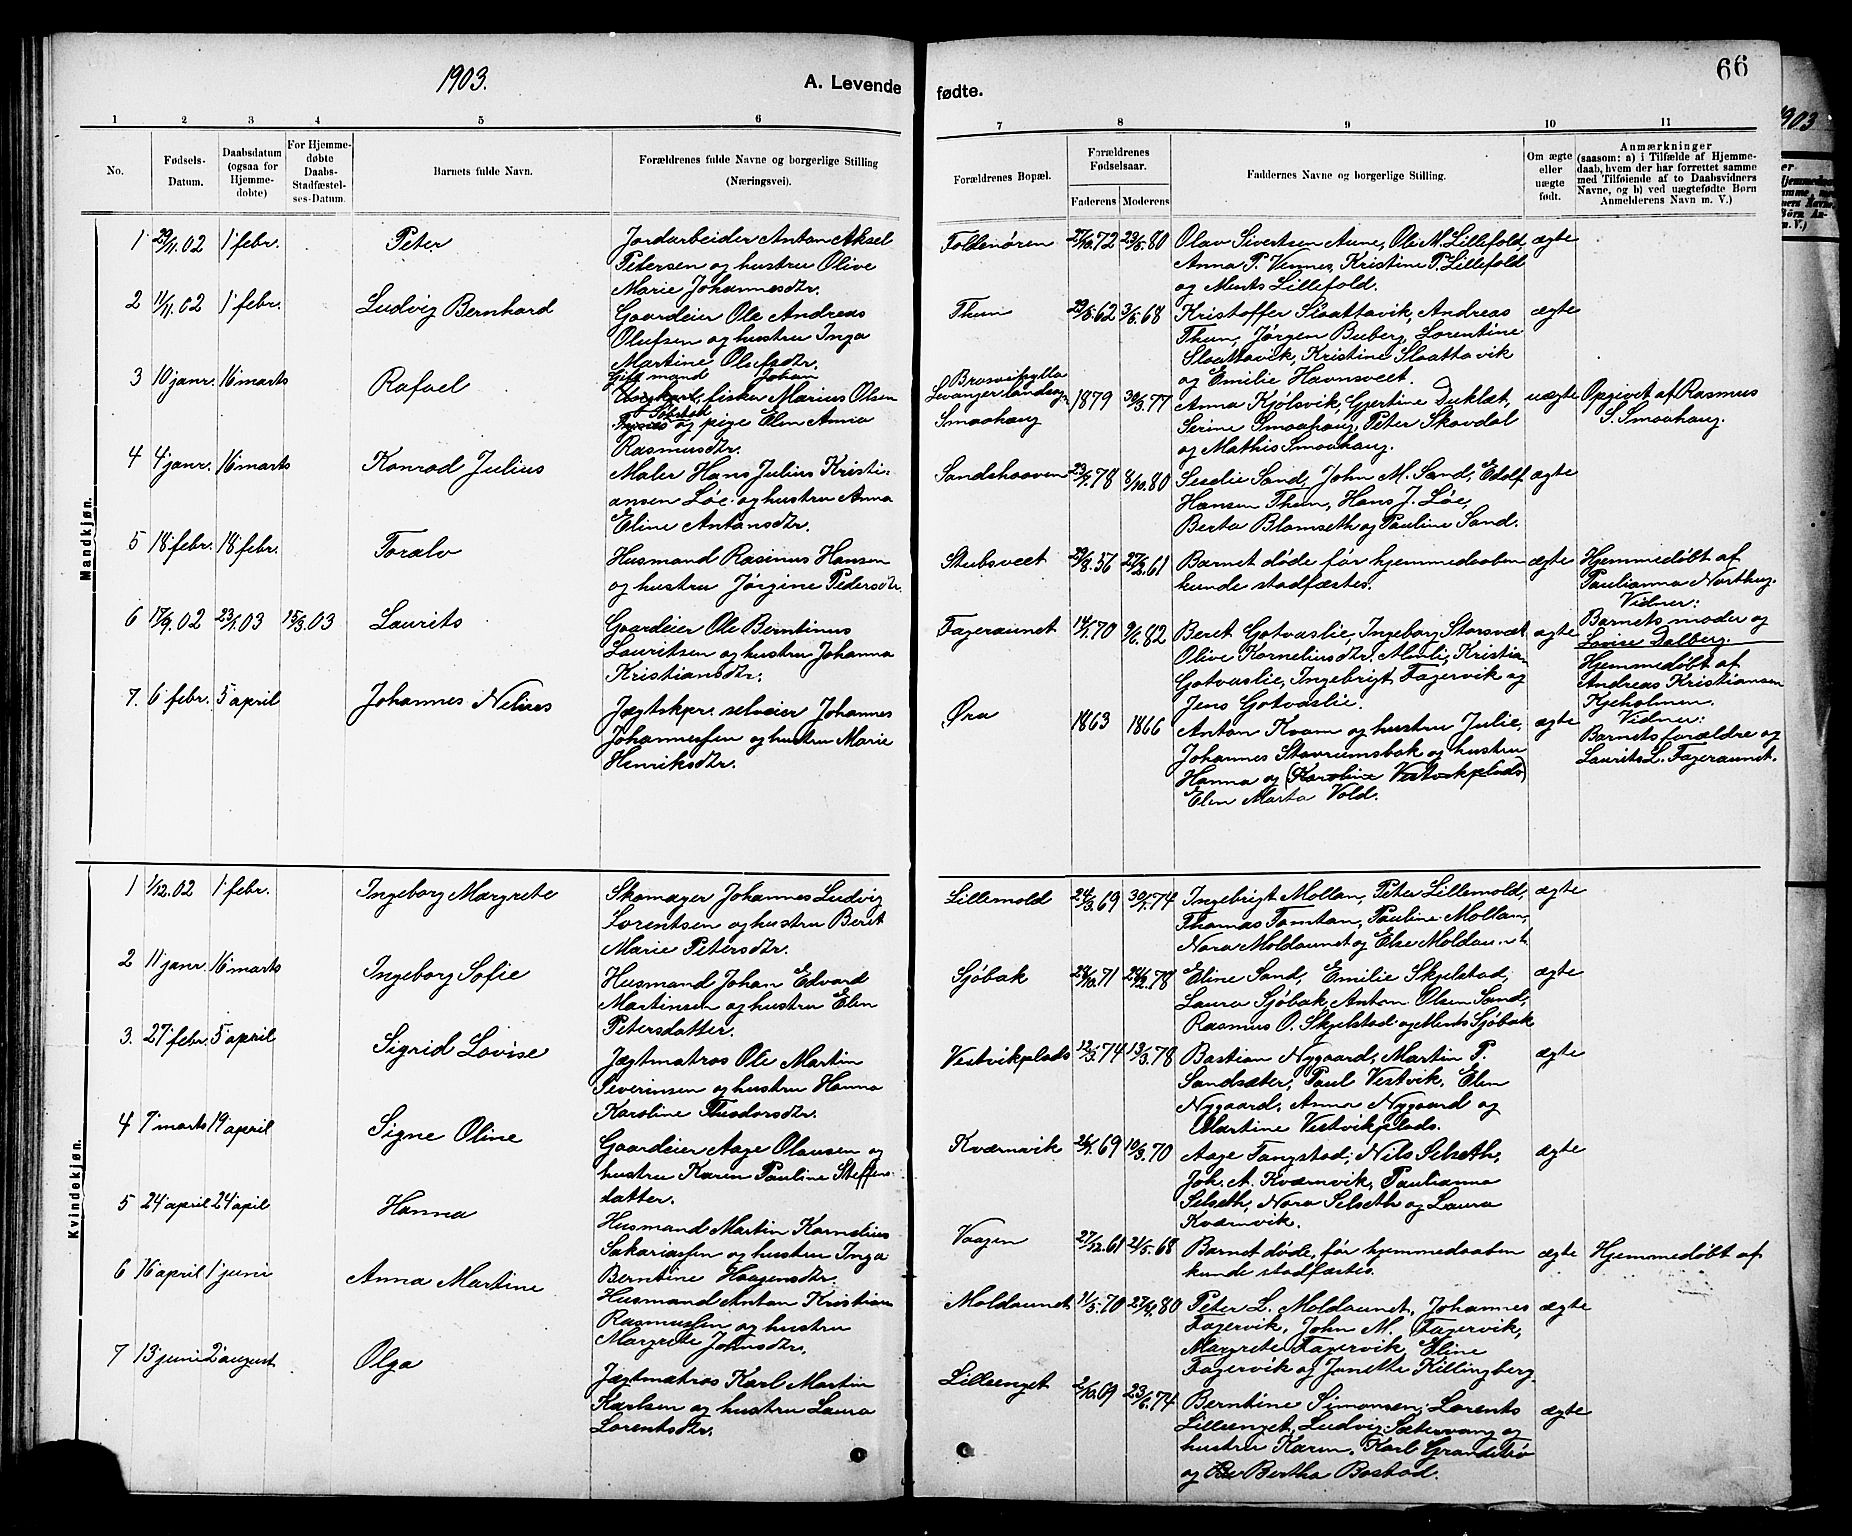 1903.
A. Levende
fødte.
66
1903
1 2 3 4 5 6 7 8 9 10 11
No.
Fødsels-
Datum.
Daabsdatum
(ogsaa for
Hjemme-
døbte)
For Hjemme-
døbte
Daabs-
Stadfæstel-
ses-Datum.
Barnets fulde Navn.
Forældrenes fulde Navne og borgerlige Stilling
(Næringsvei).
Forældrenes Bopæl.
Forældrenes
Fødselsaar.
Faderens Moderens
Faddernes Navne og borgerlige Stilling.
Om ægte
eller
uægte
født.
Anmærkninger
(saasom: a) i Tilfælde af Hjemme-
daab, hvem der har forrettet samme
med Tilføiende af to Daabsvidners
Navne, og b) ved uægtefødte Børn
Anmelderens Navn m. V.)
Mandkjøn.
1 29/11.02 1 febr. Peter
Jordarbeider Anton Aksel
Petersen og hustru Olive
Marie Johannesdtr.
Foldenøren 27/10.72 23/5.80
Olav Sivertsen Aune, Ole M. Lillefold,
Anna P. Vennes, Kristine P. Lillefold
og Ments Lillefold.
ægte
2 11/11.02 1 febr. Ludvig Bernhard
Gaardeier Ole Andreas
Olufsen og hustru Inga
Martine Olufsdtr.
Thun 29/5.62 3/5.68
Kristoffer Slaattavik, Andreas
Thun, Jørgen Buberg, Lorentine
Slaattavik, Kristine Slaattavik
og Emilie Havnsveet.
ægte
3 10 janr. 16 marts Rafael
Gift mand Johan
fisker Marius Olsen
og pige Elen Anna
Rasmusdtr.
Levanger landsogn
Smaahaug
1879 30/3.77
Anna Kjølsvik, Gjertine Duklæt,
Serine Smaahaug, Peter Skavdal
og Mathis Smaahaug.
uægte
Opgivet af Rasmus
S. Smaahaug.
4 4 janr. 16 marts Konrad Julius
Maler Hans Julius Kristi-
ansen Løe og hustru Anna
Eline Antonsdtr.
Sandshaaven 23/7.78 8/10.80
Seselie Sand, John M. Sand, Edolf
Hansen Thun, Hans J. Løe,
Berta Blomseth og Pauline Sand.
ægte
5 18 febr. 18 febr. Toralv
Husmand Rasinus Hansen
og hustru Jørgine Pedersdtr.
Stubsveet 29/8.56 27/2.61
Barnet døde før hjemmedaaben
kunde stadfæstes.
ægte
Hjemmedøbt af
Paulianna Nordhug.
Vidner:
Barnets moder og
Lovise Dalberg.
6 17/9.02 23/1.03 15/3.03 Laurits
Gaardeier Ole Berntinus
Lauritsen og hustru Johanna
Kristiansdtr.
Fageraunet 14/1.70 9/6.82
Beret Gotvaslie, Ingeborg Storsvæt
Olive Korneliusdtr. Almli, Kristian
Gotvaslie, Ingebrigt Fagervik og
Jens Gotvaslie.
ægte
Hjemmedøbt af
Andreas Kristiansen
Kjeholmen.
Vidner:
Barnets forældre og
Laurits L. Fageraunet.
7. 6 febr. 5 april Johannes Nelius
Jægtskpr. selveier Johannes
Johannessen og hustru Marie
Henriksdtr.
Øra 1863 1866
Anton Kvam og hustru Julie,
Johannes Stavrumsbak og hustru
Hanna og (Karoline Vestvikplads)
Elen Marta Vold.
ægte
Kvindekjøn.
1 1/12.02 1 febr. Ingeborg Margrete
Skomager Johannes Ludvig
Lorentsen og hustru Beret
Marie Petersdtr.
Lillemold 24/3.69 30/7.74
Ingebrigt Mollan, Peter Lillemold,
Thomas Tamtan, Pauline Mollan,
Nora Moldaunet og Else Moldaunet.
ægte
2 11 janr. 16 marts Ingeborg Sofie
Husmand Johan Edvard
Martinsen og hustru Elen
Petersdatter.
Sjøbak 28/10.71 24/2.78
Eline Sand, Emilie Skjelstad,
Laura Sjøbak, Anton Olsen Sand,
Rasmus O. Skjelstad og Ments Sjøbak
ægte
3. 27 febr. 5 april Sigrid Lovise
Jægtmatros Ole Martin
Severinsen og hustru Hanna
Karoline Theodorsdtr.
Vestvikplads 12/3.74 13/3.78
Bastian Nygaard, Martin P.
Sandsæter, Paul Vestvik, Elen
Nygaard, Anna Nygaard og
Martine Vestvikplads.
ægte
4 7 marts 19 april Signe Oline
Gaardeier Aage Olausen og
hustru Karen Pauline Steffens-
datter.
Kværnvik 26/1.69 10/3.70
Aage Tangstad, Nils Selseth,
Joh. A. Kværnvik, Paulianna
Selseth, Nora Selseth og Laura
Kværnvik.
ægte
5 24 april 24 apil Hanna
Husmand Martin Kornelius
Sakariassen og hustru Inga
Berntine Haagensdtr.
Vaagen 27/12.61 21/5.68
Barnet døde, før hjemmedaaben
kunde stadfæstes.
ægte
Hjemmedøbt af
6 16 april 1 juni Anna Martine
Husmand Anton Kristian
Rasmussen og hustru
Margrete Johnsdtr.
Moldaunet 11/3.70 27/4.80
Peter L. Moldaunet, Johannes
Fagervik, John M. Fagervik,
Margrete Fagervik, Eline
Fagervik og Janette Killingberg.
ægte
7 13 juni 2 august Olga
Jægtmatros Karl Martin
Karlsen og hustru Laura
Lorentsdtr.
Lilleenget 2/10.69 23/6.74
Berntine Simonsen, Lorents
Lilleenget, Ludvig Sætervang og
hustru Karen, Karl Grandetrø
og Bertha Bostad.
ægte